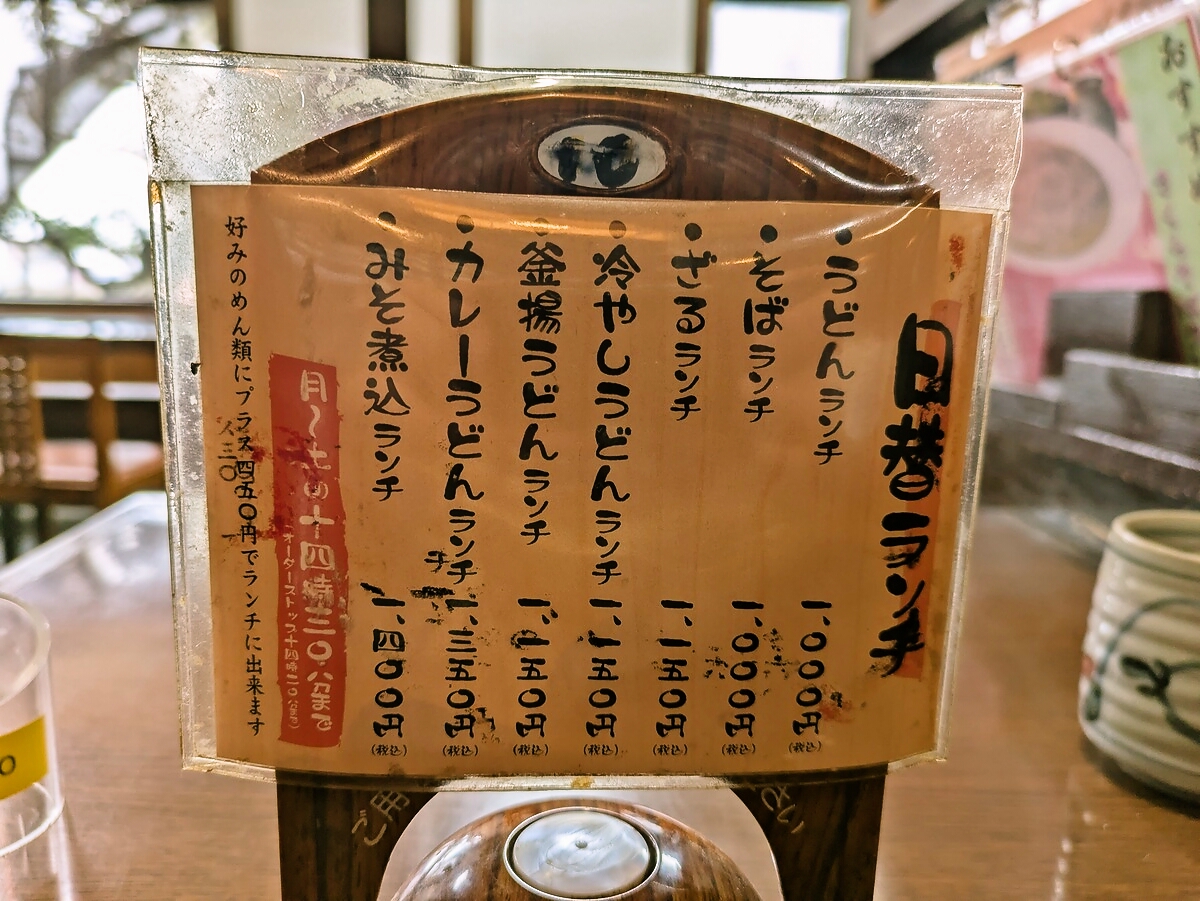 日替ランチ
・うどんランチ 一、〇〇〇円(税込)
・そばランチ 一、〇〇〇円(税込)
・ざるランチ 一、一五〇円(税込)
・冷やしうどんランチ 一、一五〇円(税込)
・釜揚うどんランチ 一、一五〇円(税込)
・カレーうどんランチ 一、三五〇円(税込)
・みそ煮込ランチ 一、四〇〇円(税込)
月〜土の十四時三〇分まで
(オーダーストップ十四時二〇分まで)
好みのめん類にプラス四五〇円でランチに出来ます
ご用
さい